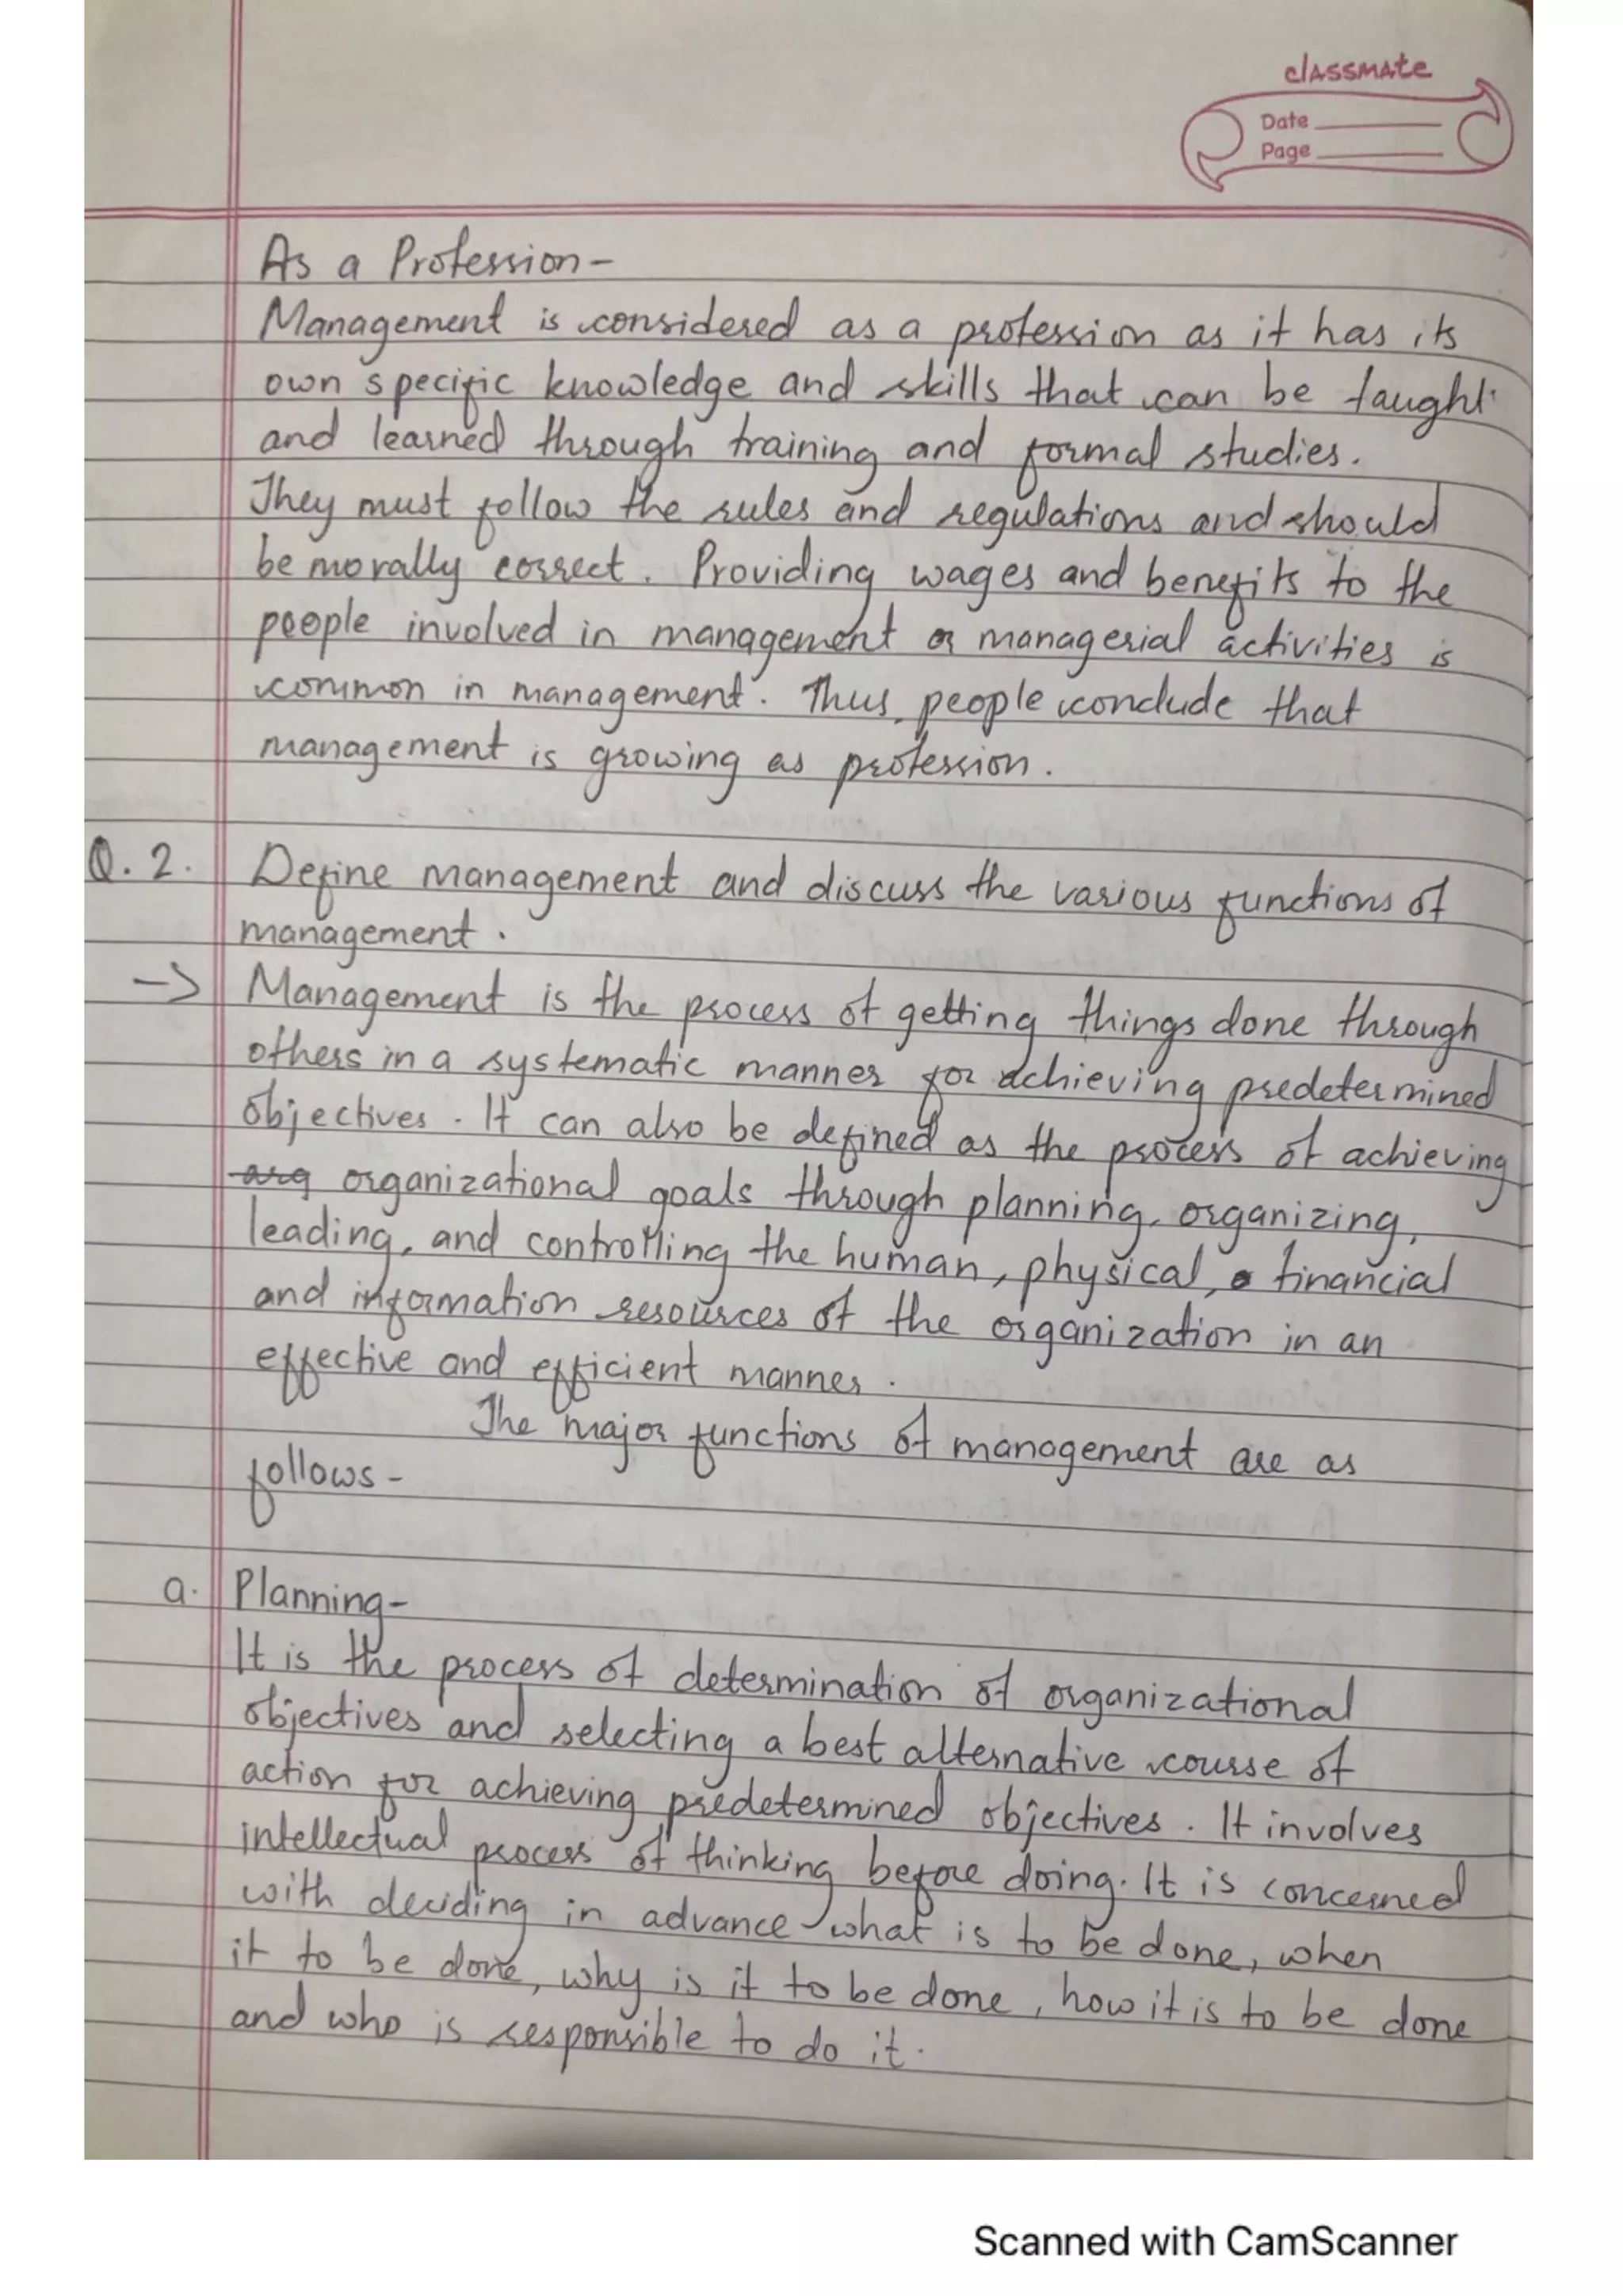 classmate
Date
Page
As a Profession-
Management is considered as a profession as it has its
own specific knowledge and skills that can be taught
and learned through training and formal studies.
They must follow the rules and regulations and should
be morally correct. Providing wages and benefits to the
people involved in management or managerial activities is
common in management. Thus, people conclude that
management is growing as profession.
Q.2. Define management and discuss the various functions of
management.
-> Management is the process of getting things done through
others in a systematic manner for achieving predetermined
objectives. It can also be defined as the process of achieving
arg organizational goals through planning, organizing,
leading, and controlling the human, physical, financial
and information resources of the organization in an
effective and efficient manner.
The major functions of management are as
follows-
a. Planning-
It is the process of determination of organizational
objectives and selecting a best alternative course of
action for achieving predetermined objectives. It involves
intellectual process of thinking before doing. It is concerned
with deciding in advance what is to be done, when
it to be done, why is it to be done, how it is to be done
and who is responsible to do it.
Scanned with CamScanner